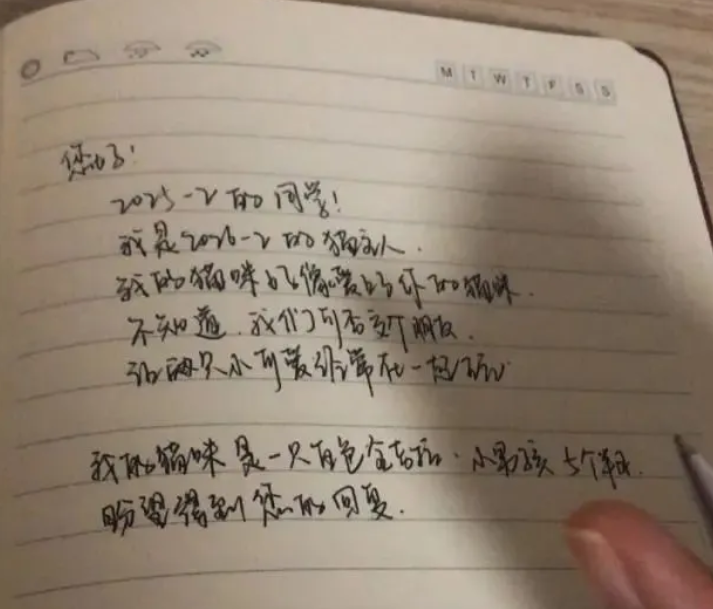 M T W T F S S
您好!
2025-2的同学!
我是2026-2的猫主人.
我的猫咪好像爱上你的猫咪.
不知道,我们可否交个朋友.
让两只小可爱经常在一起玩
我的猫咪是一只白色金吉拉.小男孩5个月.
盼望得到您的回复.